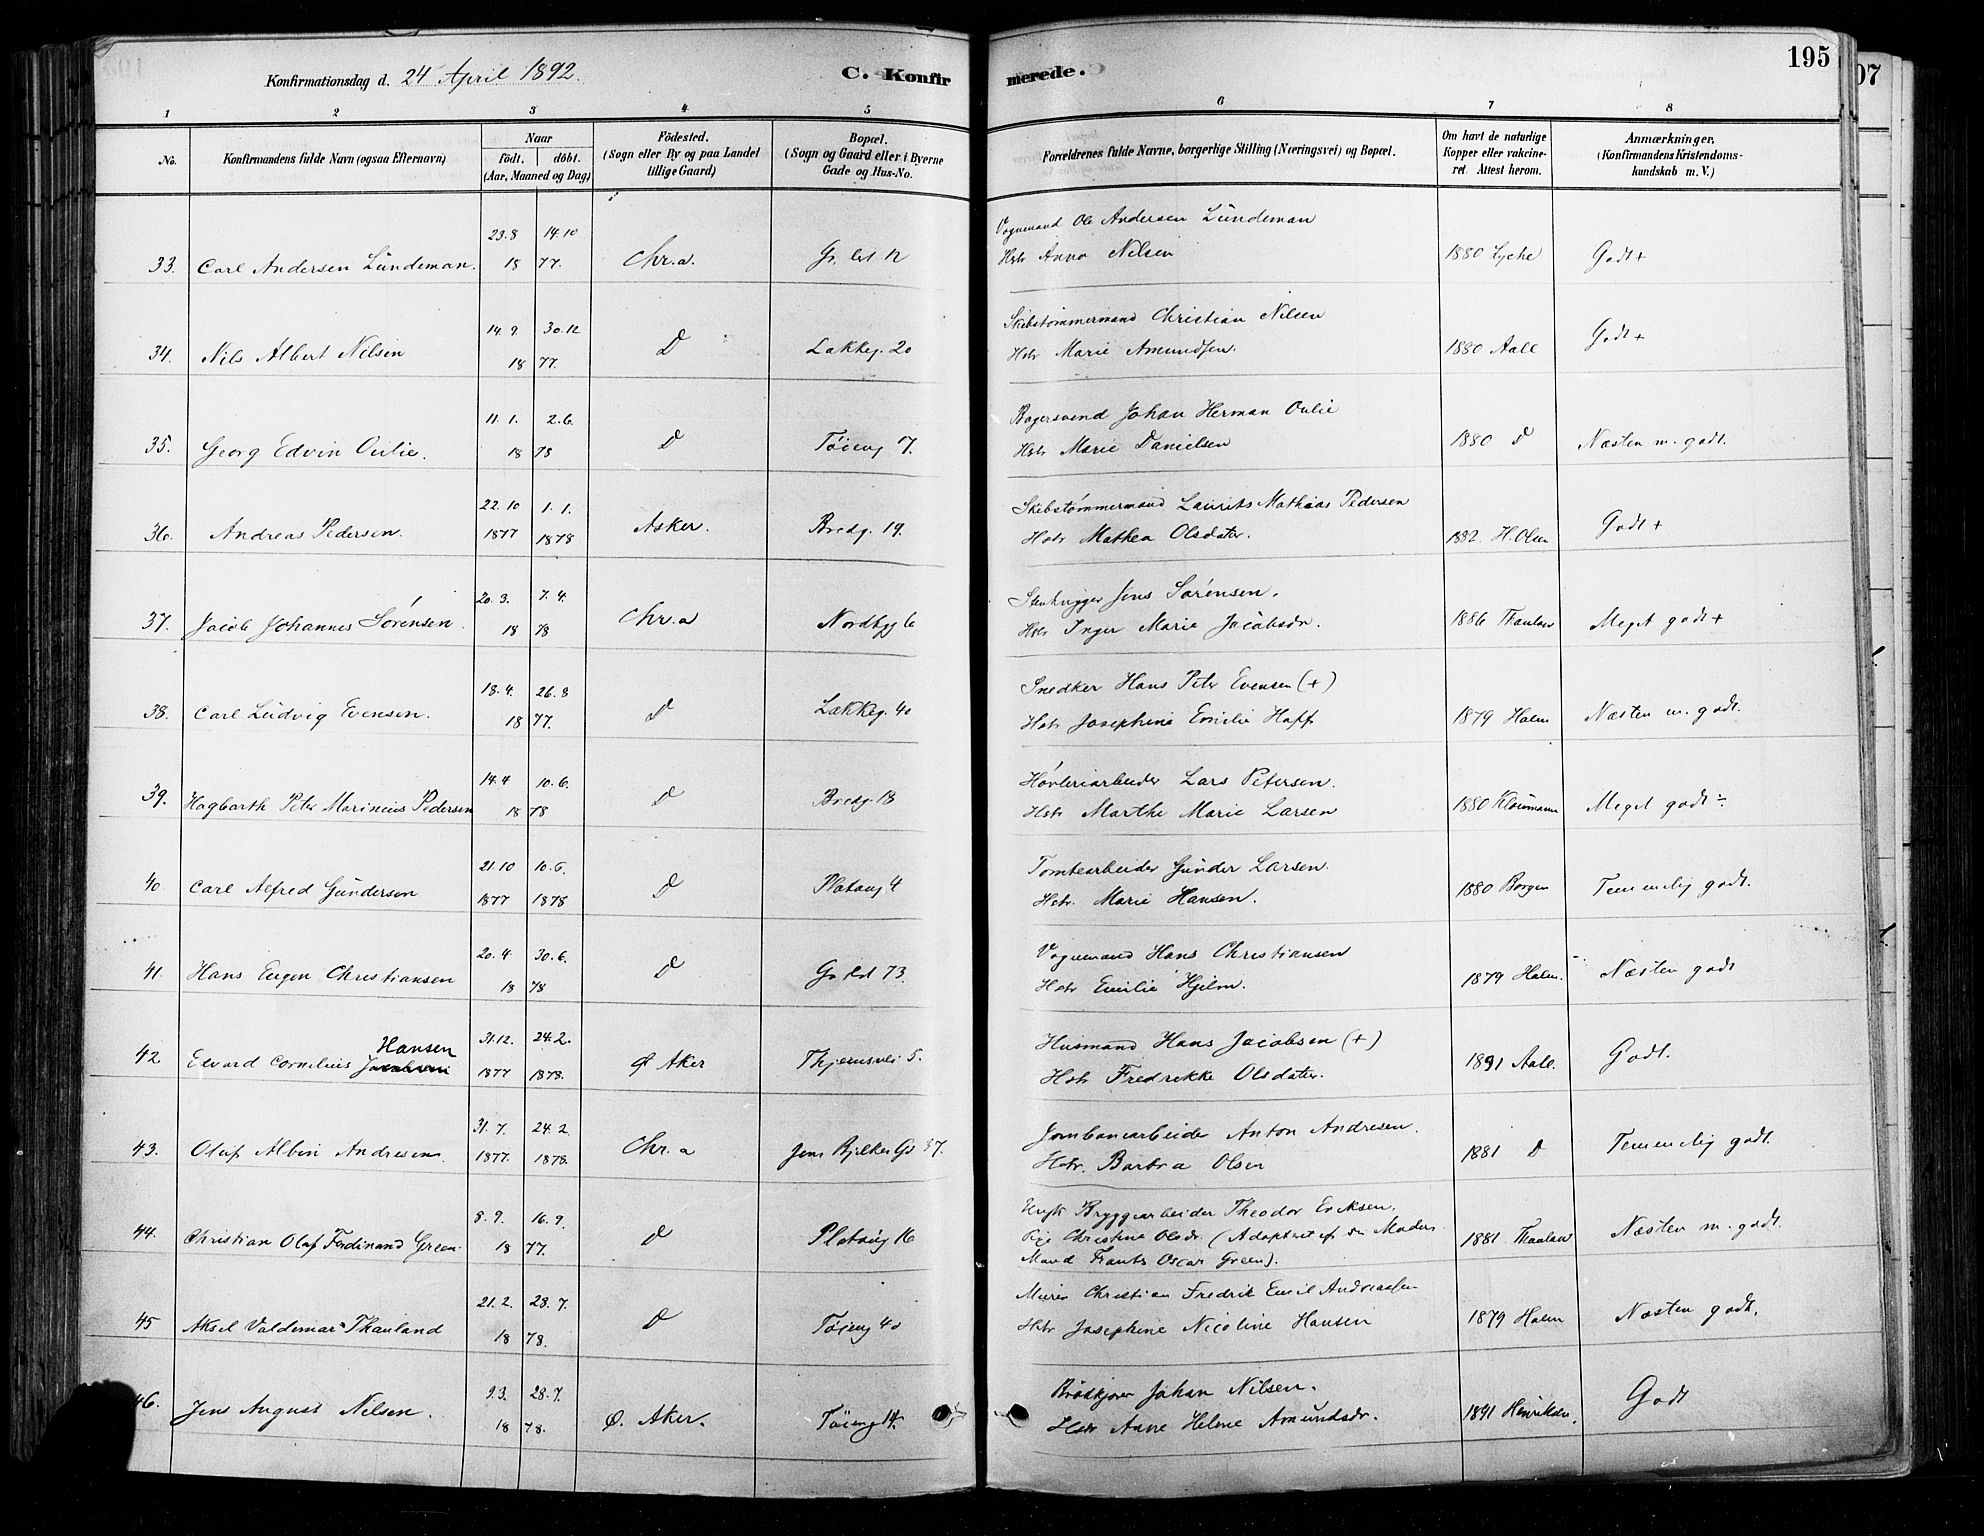 195
07
Konfirmationsdag d. 24 April 1892.
C. Konfirmerede.
1 2 3 4 5 6 7 8
No. | Konfirmandens fulde Navn (ogsaa Efternavn) | Naar födt. döbt. (Aar, Maaned og Dag) | Födested. (Sogn eller By og paa Landet tillige Gaard) | Bopæl. (Sogn og Gaard eller i Byerne Gade og Hus-No. | Forældrenes fulde Navne, borgerlige Stilling (Næringsvei) og Bopæl. | Om havt de naturlige Kopper eller vakcineret. Attest herom. | Anmærkninger, (Konfirmandens Kristendomskundskab m. V.)
33. Carl Andersen Lundeman. | 23.8 14.10 1877. | Chr.a. | Gr. | Vognmand Ole Andersen Lundeman
Hstr Anna Nilsen | 1880 Lyche | Godt +
34. Nils Albert Nilsen | 14.9. 30.12 1877. | D | Lakkeg. 20 | Skibstømmermand Christian Nilsen
Hstr Marie Amundsen. | 1880 Aall | Godt +
35. Georg Edvin Oulie. | 11.1. 2.6. 1878 | D | Tøieng 7. | Bagersvend Johan Herman Oulie
Hstr Marie Danielsen | 1880 D | Næsten m. godt.
36. Andreas Pedersen. | 22.10 1877 1.1. 1878 | Asker. | Bredg. 19. | Skibstømmermand Laurits Mathias Pedersen
Hstr Mathea Olsdater. | 1882. H. Olsen | Godt +
37. Jacob Johannes Sörensen. | 20.3. 7.4. 1878 | Chr.a | Nordbyg 6 | Stenhugger Jens Sørensen.
Hstr Inger Marie Jacobsdr. | 1886 Thaulow | Meget godt +
38. Carl Ludvig Evensen. | 18.4. 26.8 1877. | D | Lakkeg. 40 | Snedker Hans Peter Evensen (+)
Hstr Josephine Emilie Hoff | 1879 Holm | Næsten m. godt.
39. Hagbarth Peter Marinius Pedersen | 14.4 10.6. 1878 | D | Bredg. 18 | Høvleriarbeider Lars Petersen.
Hstr Marthe Marie Larsen | 1880 Kloumann | Meget godt ÷
40 Carl Alfred Gundersen | 21.10 1877 10.6. 1878 | D | Platoug 4 | Tomtearbeider Gunder Larsen.
Hstr. Marie Hansen. | 1880 Borgen | Temmelig godt.
41. Hans Eugen Christiansen | 20.4 30.6. 1878 | D | 73. | Vognmand Hans Christiansen
Hstr Emilie Hjelm. | 1879 Holm. | Næsten godt
42 Edvard Cornelius Hansen | 31.12. 1877 24.2. 1878. | Ø Aker | 5. | Husmand Hans Jacobsen (+)
Hstr Fredrikke Olsdater. | 1891 Aall. | Godt.
43. Oluf Albin Andresen. | 31.7. 1877. 24.2. 1878. | Chr.a | Jens Bjelkes Gd 37. | Jernbanearbeider Anton Andresen.
Hstr. Barbra Olsen | 1881 D | Temmelig godt.
44. Christian Olaf Ferdinand Green. | 8.9. 16.9. 1877. | D | Platoug 16 | Bryggearbeider Theodor Eriksen.
Pige Christine Olsdr. (Adopteret af Moders
Mand Frants Oscar Green). | 1881 Thaulow | Næsten m. godt.
45 Aksel Valdemar Thauland | 21.2. 28.7. 1878. | D | Tøieng 40 | Murer Christian Fredrik Emil Andreassen
Hstr Josephine Nicoline Hansen | 1879 Holm | Næsten godt.
46. Jens August Nilsen. | 9.3. 28.7. 1878. | Ø. Aker. | Tøieng 14. | Brödkjører Johan Nilsen.
Hstr Anne Helene Amundsdr. | 1891 Henriksen. | Godt